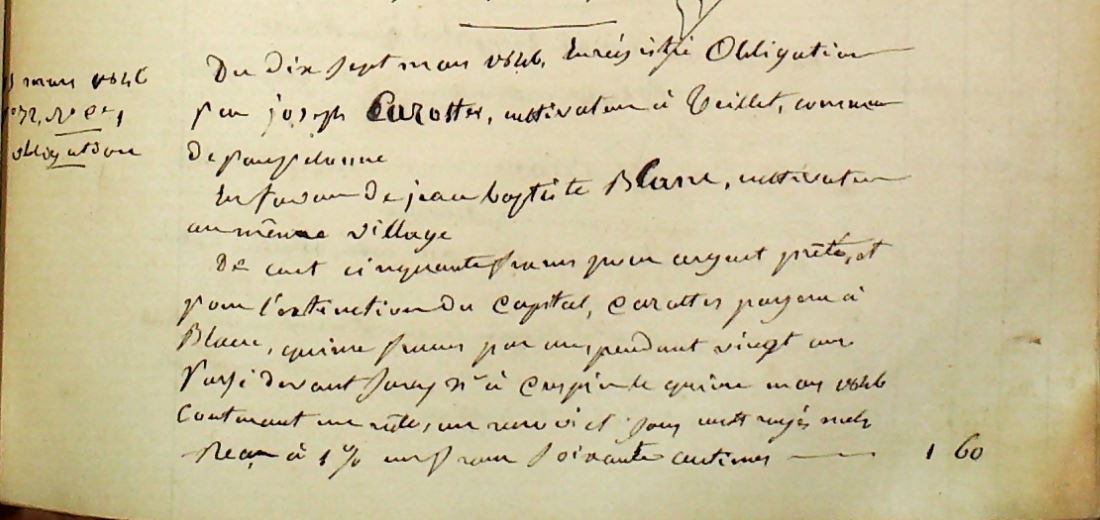 mars 1846
f° 72, R° Ce 1
obligation
Du dix sept mars 1846, Enregistré Obligation
par joseph Carottes, cultivateur à Teillet, commune
de pampelonne
En faveur de jean baptiste Blanc, cultivateur
au même village
De cent cinquante francs pour argent prêté, et
pour l'extinction du Capital, Carottes payera à
Blanc, quinze francs par an, pendant vingt ans
Passé devant N^re à Crespin le quinze mars 1846
Contenant un rôle, un renvoi et mots rayés nuls
Reçu à 1 % un franc soixante centimes 1 60